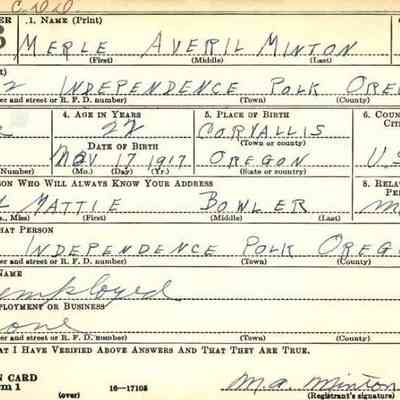 C.D.D.
ER 1. NAME (Print)
MERLE AVERIL MINTON
(First) (Middle) (Last)
2 INDEPENDENCE POLK OREG
er and street or R. F. D. number) (Town) (County)
4. AGE IN YEARS 5. PLACE OF BIRTH 6. COUN
22 CORVALLIS CIT
(Town or county)
DATE OF BIRTH
NOV 17 1917 OREGON U S
Number) (Mo.) (Day) (Yr.) (State or country)
SON WHO WILL ALWAYS KNOW YOUR ADDRESS 8. RELA
PERS
MATTIE BOWLER M
s, Miss) (First) (Middle) (Last)
HAT PERSON
INDEPENDENCE POLK OREGO
er and street or R. F. D. number) (Town) (County)
NAME
employed
PLOYMENT OR BUSINESS
one
er and street or R. F. D. number) (Town) (County)
AT I HAVE VERIFIED ABOVE ANSWERS AND THAT THEY ARE TRUE.
N CARD
rm 1 (over) 16—17105
M.A. Minton
(Registrant's signature)